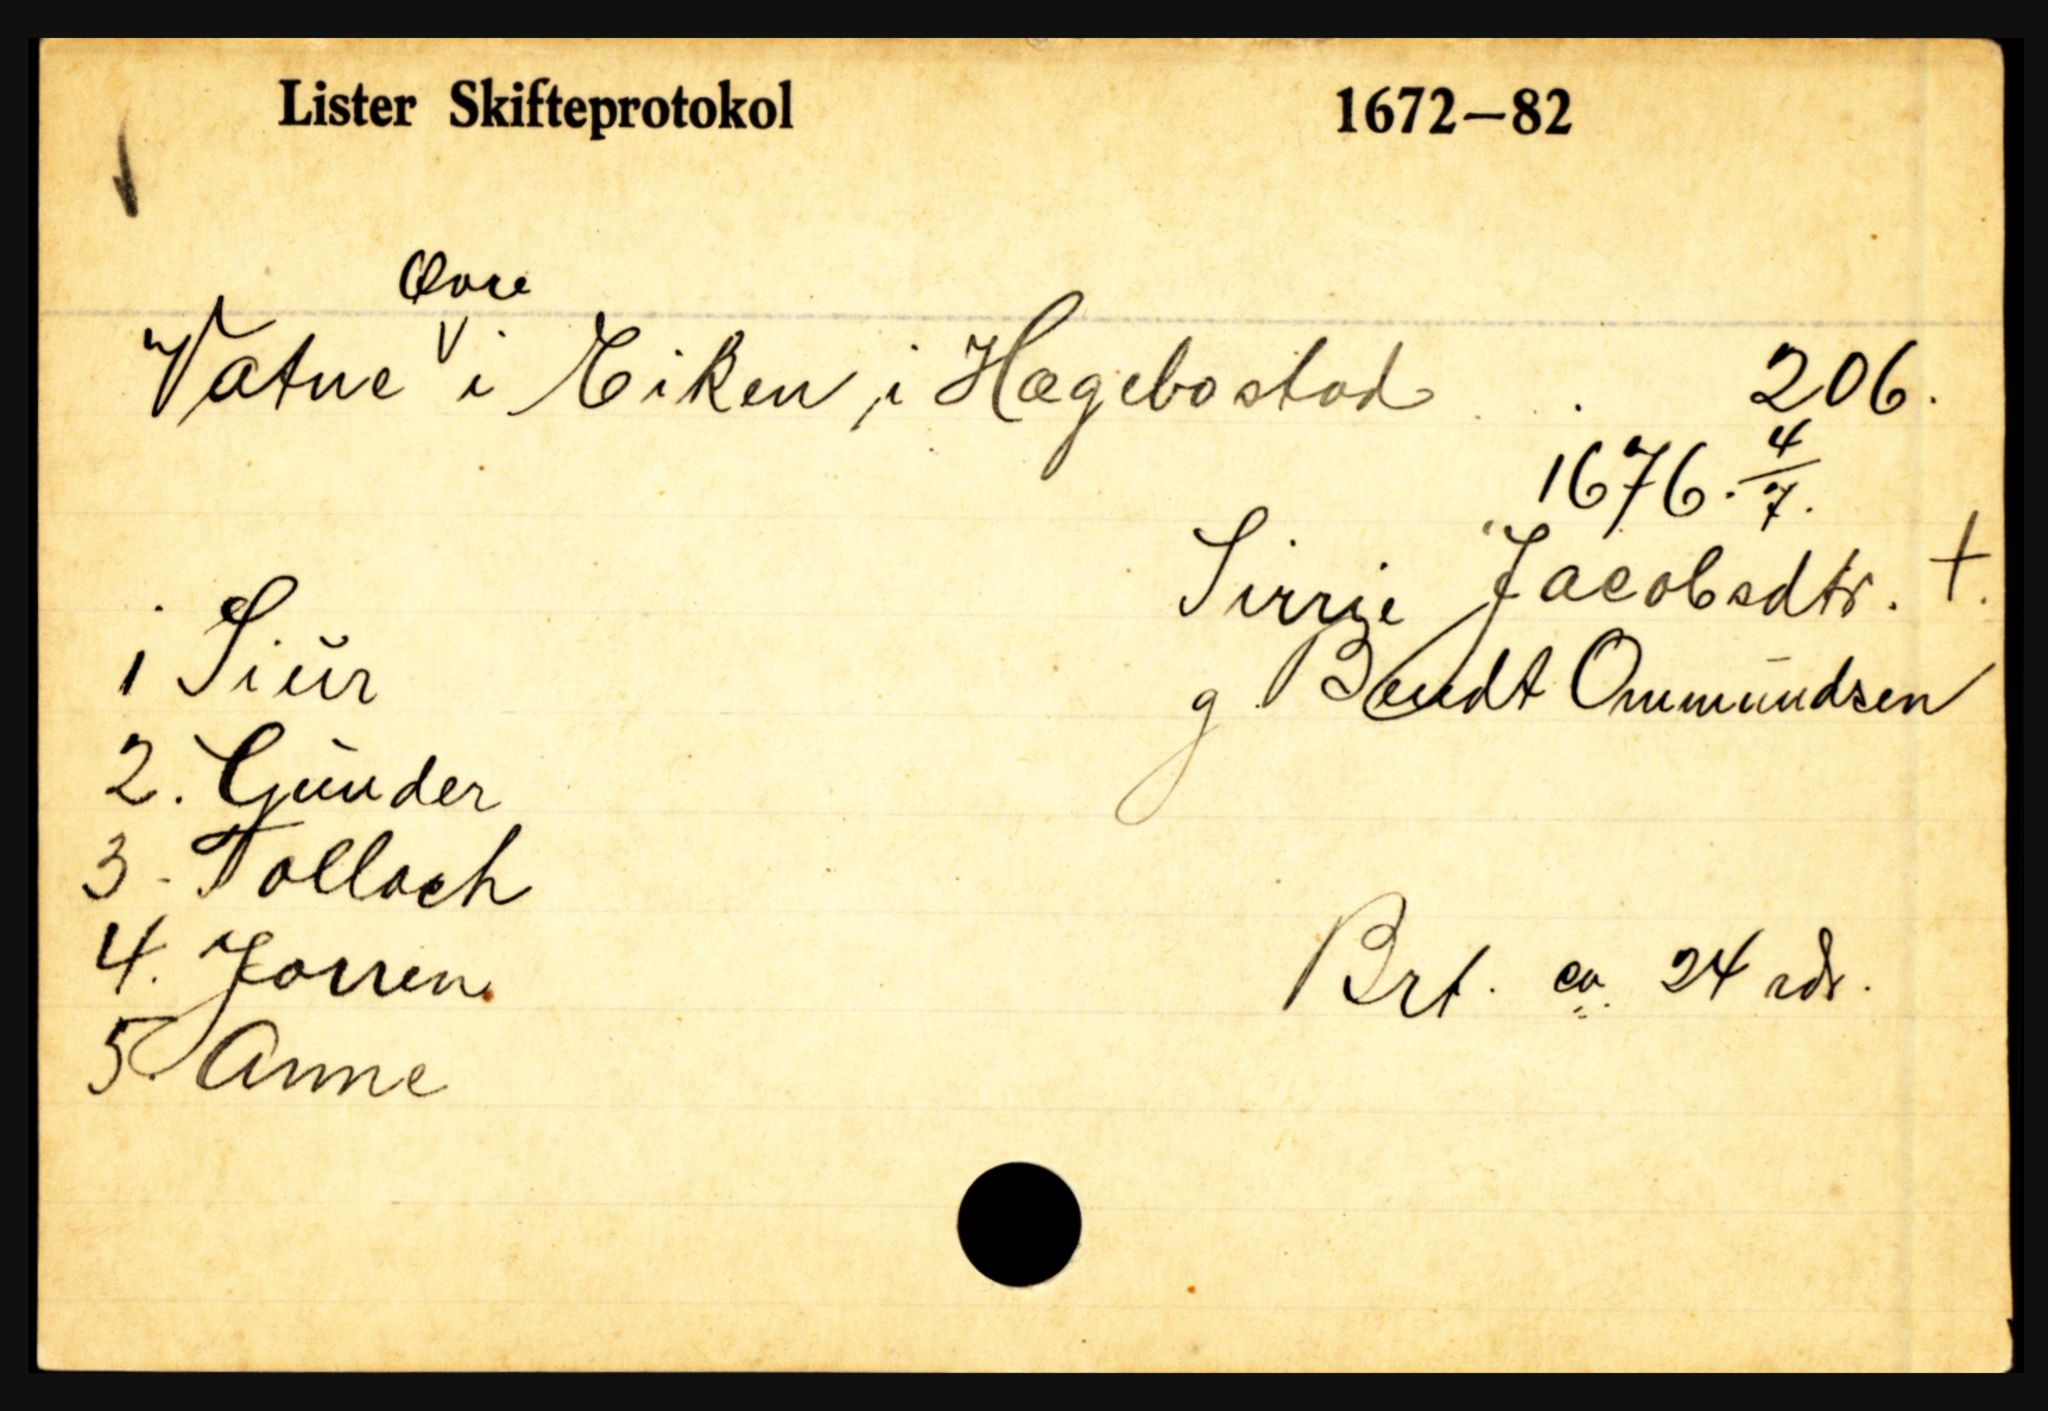 Lister Skifteprotokol 1672–82
Øvre
Vatne i Eiken, i Hægebostad 206.
1676. 4/7.
Sirrie Jacobsdtr. +.
g Bendt Ommundsen
1 Siur
2. Gunder
3. Tollach
4. Jorren
5. Anne
Brt. ca. 24 rdr.